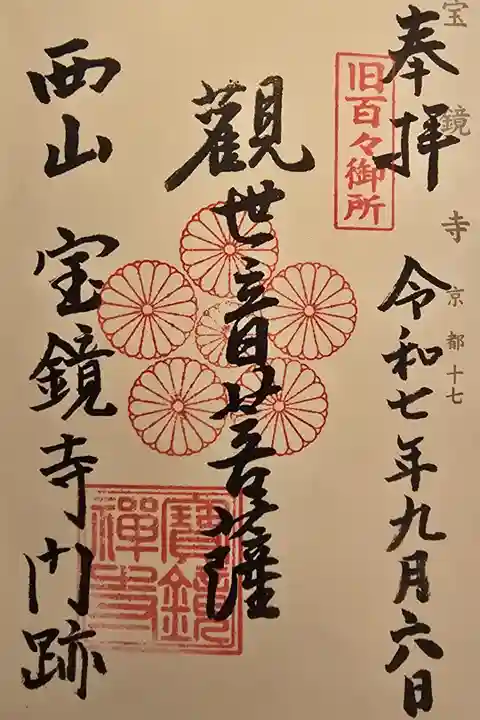 宝鏡寺 京都十七
奉拝 令和七年九月六日
旧百々御所
觀世音菩薩
西山 宝鏡寺門跡
寶鏡
禪寺